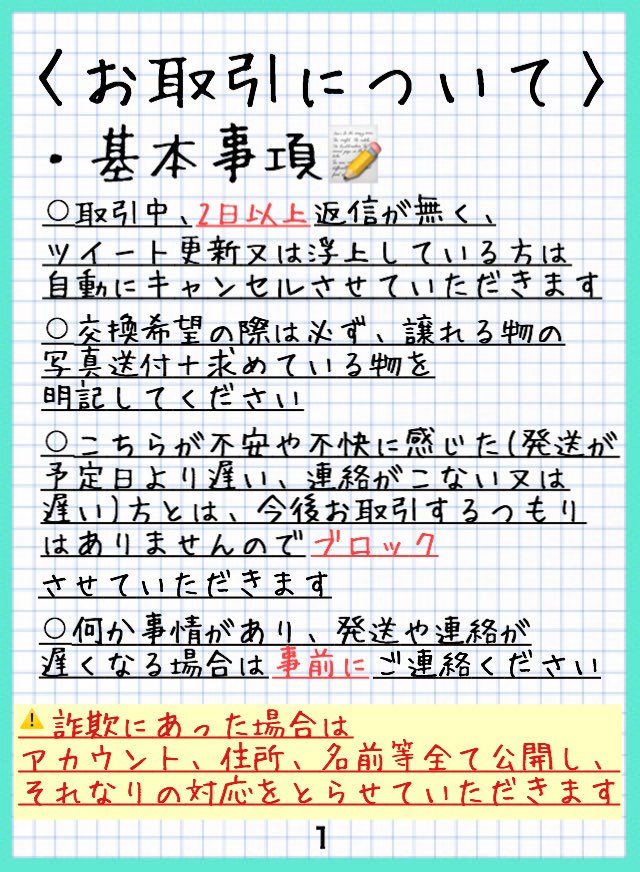 〈お取引について〉
・基本事項📝
○取引中、2日以上返信が無く、
ツイート更新又は浮上している方は
自動にキャンセルさせていただきます
○交換希望の際は必ず、譲れる物の
写真送付+求めている物を
明記してください
○こちらが不安や不快に感じた(発送が
予定日より遅い、連絡がこない又は
遅い)方とは、今後お取引するつもり
はありませんのでブロック
させていただきます
○何か事情があり、発送や連絡が
遅くなる場合は事前にご連絡ください
⚠️詐欺にあった場合は
アカウント、住所、名前等全て公開し、
それなりの対応をとらせていただきます
1